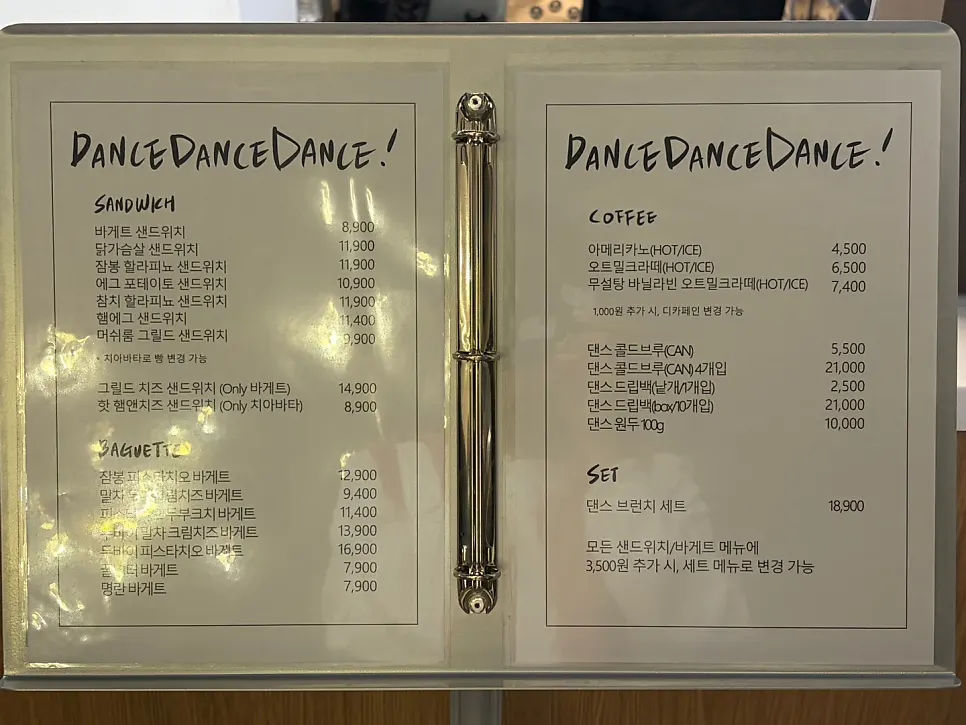 DANCEDANCEDANCE!
SANDWICH
바게트 샌드위치 8,900
닭가슴살 샌드위치 11,900
잠봉 할라피뇨 샌드위치 11,900
에그 포테이토 샌드위치 10,900
참치 할라피뇨 샌드위치 11,900
햄에그 샌드위치 11,400
머쉬룸 그릴드 샌드위치 9,900
* 치아바타로 빵 변경 가능
그릴드 치즈 샌드위치 (Only 바게트) 14,900
핫 햄앤치즈 샌드위치 (Only 치아바타) 8,900
BAGUETTE
잠봉 피스타치오 바게트 12,900
말차 크림치즈 바게트 9,400
바게트 11,400
두바이 말차 크림치즈 바게트 13,900
두바이 피스타치오 바게트 16,900
바게트 7,900
명란 바게트 7,900
DANCEDANCEDANCE!
COFFEE
아메리카노(HOT/ICE) 4,500
오트밀크라떼(HOT/ICE) 6,500
무설탕 바닐라빈 오트밀크라떼(HOT/ICE) 7,400
1,000원 추가 시, 디카페인 변경 가능
댄스 콜드브루(CAN) 5,500
댄스 콜드브루(CAN) 4개입 21,000
댄스 드립백(낱개/1개입) 2,500
댄스 드립백(box/10개입) 21,000
댄스 원두 100g 10,000
SET
댄스 브런치 세트 18,900
모든 샌드위치/바게트 메뉴에
3,500원 추가 시, 세트 메뉴로 변경 가능